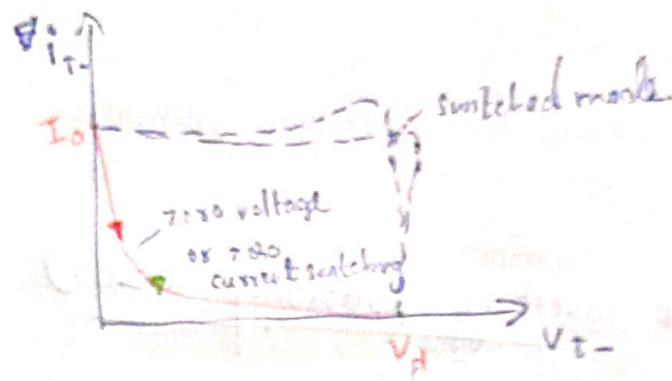 i T-
I0
switched mode
zero voltage
or zero
current switching
Vd
V T-